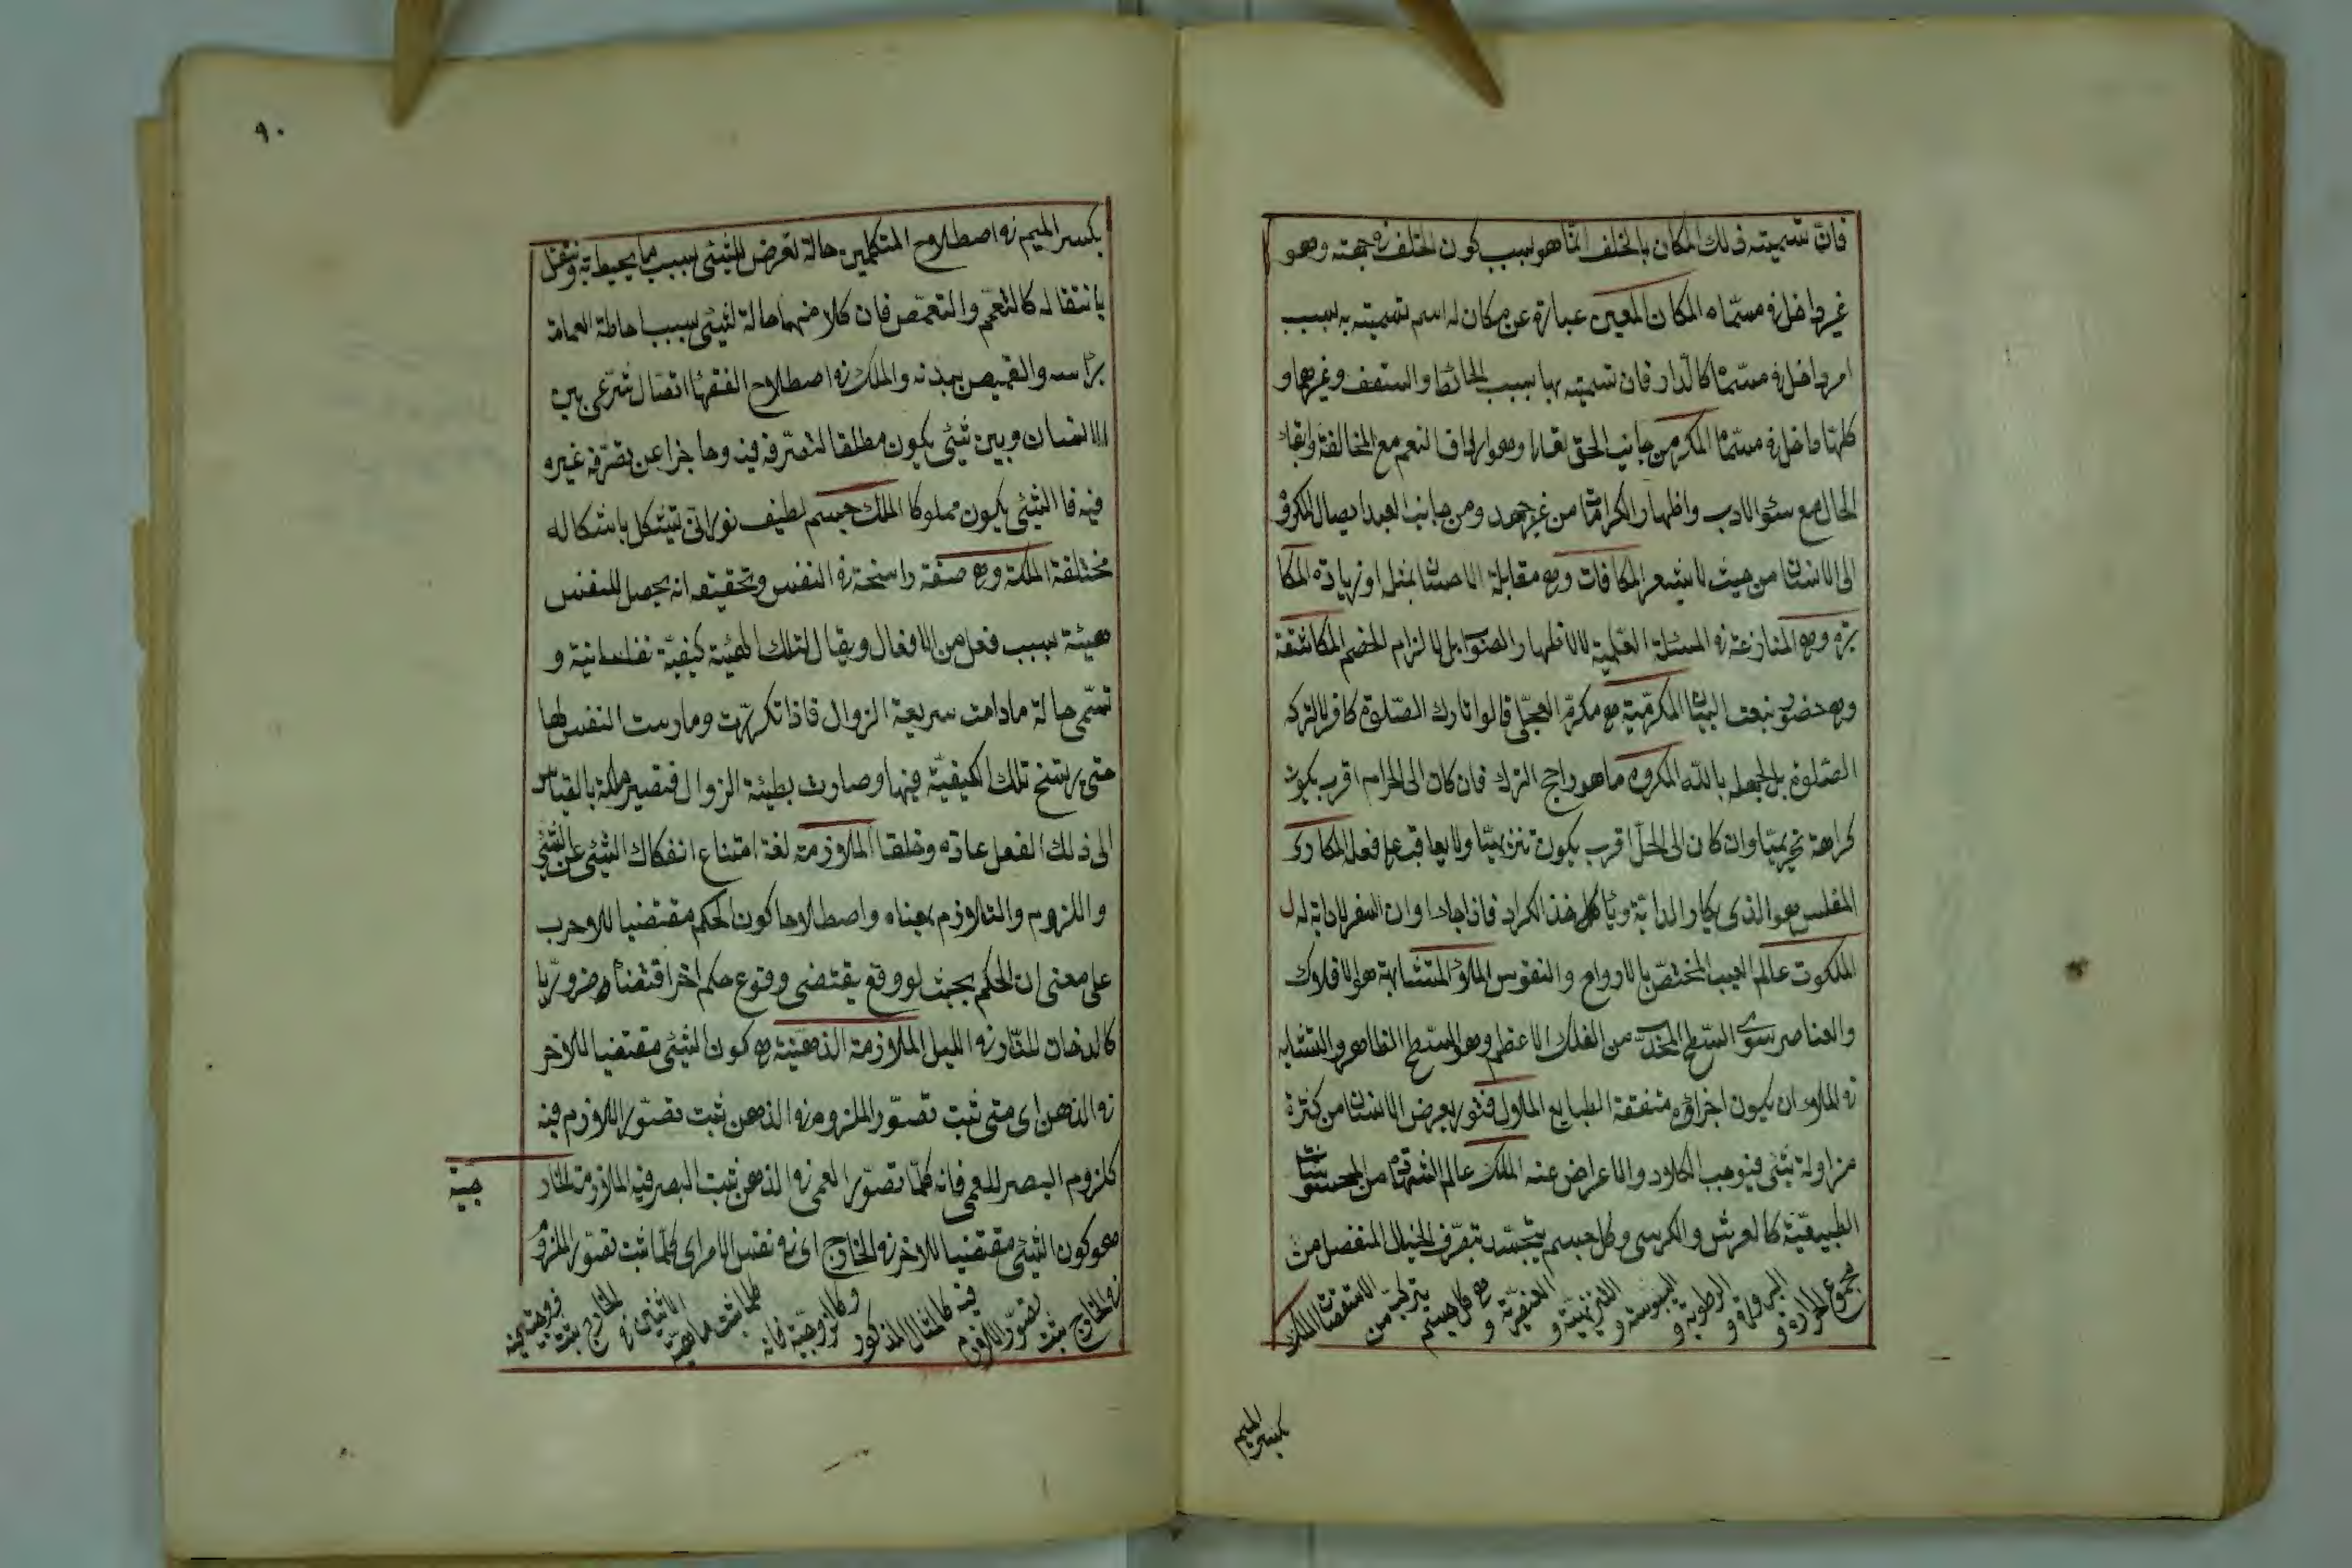 فان تسميته ذلك المكان بالخلف انما هو بسبب كون الخلف في جهته وهو
غير داخل في مسماه المكان المعين عبارة عن مكان له اسم تسميته به بسبب
امر داخل في مسماه كالدار فان تسميته بها بسبب الحائط والسقف وغيرهما و
كلها داخل في مسماه المكر من جانب الحق تعالى وهو ارداف النعم مع المخالفة وابقاء
الحال مع سؤ الادب واظهار الكرامات من غير جهد ومن جانب العبد ايصال المكروه
الى الانسان من حيث لا يشعر المكافات وهي مقابلة الاحسان بمثله او زيادة المكا
برة وهي المنازعة في المسئلة العلمية لا لاظهار الصواب بل لالزام الخصم المكاشفة
وهي حضور بنعت البيان المكرمية هم مكرم العجلي قالوا تارك الصلوة كافر لا لترك
الصلوة بل لجهله بالله المكروه ما هو راجح الترك فان كان الى الحرام اقرب يكون
كراهة تحريميا وان كان الى الحل اقرب يكون تنزيهيا ولا يعاقب على فعله المكارى
المفلس هو الذى يكار الدابة ويأخذ الكراء فاذا جاء اوان السفر لا دابة له
الملكوت عالم الغيب المختص بالارواح والنفوس الملأ المتشابه هو الافلاك
والعناصر سوى السطح المحدب من الفلك الاعظم وهو السطح الظاهر والتشابه
في الملأ ان يكون اجزاؤه متفقة الطبايع الملال فتور يعرض الانسان من كثرة
مزاولة شئ فيوجب الكلال والاعراض عنه الملك عالم الشهادة من المحسوسات
الطبيعية كالعرش والكرسي وكل جسم يتجسد بتصرف الخيال المنفصل من
مجموع الحرارة و البرودة و الرطوبة و اليبوسة و التنزيهية و العنصرية و هي كل جسم يتركب من الاستقصات الملك
بكسر الميم
٩٠
بكسر الميم في اصطلاح المتكلمين حالة تعرض للشئ بسبب ما يحيط به وينتقل
بانتقاله كالتعمم والتقمص فان كلا منهما حالة لشئ بسبب احاطة العمامة
براسه والقميص ببدنه والملك في اصطلاح الفقهاء اتصال شرعى بين
الانسان وبين شئ يكون مطلقا لتصرفه فيه وحاجزا عن تصرف غيره
فيه فالشئ يكون مملوكا الملك جسم لطيف نورانى يتشكل باشكاله
مختلفة الملكة وهي صفة راسخة في النفس وتحقيقه انه يحصل للنفس
هيئة بسبب فعل من الافعال ويقال لتلك الهيئة كيفية نفسانية و
تسمى حالة مادامت سريعة الزوال فاذا تكررت ومارست النفس لها
حتى يرسخ تلك الكيفية فيها وصارت بطيئة الزوال فتصير ملكة بالقياس
الى ذلك الفعل عادة وخلقا الملازمة لغة امتناع انفكاك الشئ عن الشئ
واللزوم والتلازم بمعناه واصطلاحا كون الحكم مقتضيا للاخر
على معنى ان الحكم بحيث لو وقع يقتضى وقوع حكم اخر اقتضاء ضروريا
كالدخان للنار في الليل الملازمة الذهنية هي كون الشئ مقتضيا للاخر
في الذهن اى متى ثبت تصور الملزوم في الذهن ثبت تصور اللازم فيه
كلزوم البصر للعمى فانه كلما تصور العمى في الذهن ثبت البصر فيه الملازمة الخار
جية
هو كون الشئ مقتضيا للاخر في الخارج اى في نفس الامر اى كلما ثبت تصور الملزوم
في الخارج ثبت تصور اللازم فيه كالمثال المذكور وكالزوجية فانه كلما ثبت ماهية الاثنين في الخارج ثبت زوجيته فيه